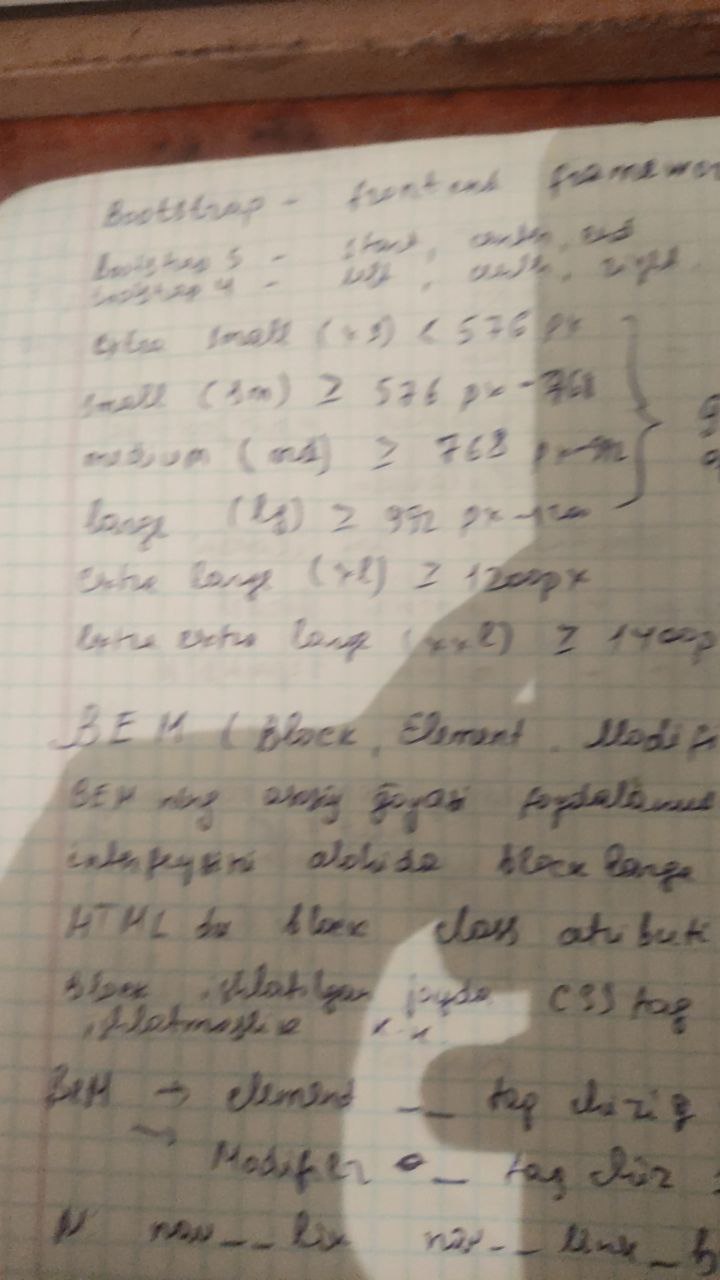 Bootstrap - frontend framewor
Bootstrap 5 - start, center, end
Bootstrap 4 - left, center, right
extra small (xs) < 576 px
small (sm) ≥ 576 px - 768
medium (md) ≥ 768 px
large (lg) ≥ 992 px
extra large (xl) ≥ 1200px
Extra extra large (xxl) ≥ 1400p
BEM (Block, Element, Modifi
BEM ning asosiy g'oyasi foydalanuv
interfeysini alohida block larga
HTML da block class atributi
block ishlatilgan joyda CSS tag
ishlatmaslik
BEM → element __ tag chiziq
→ Modifier _ tag chiz
N nav__link nav__link_